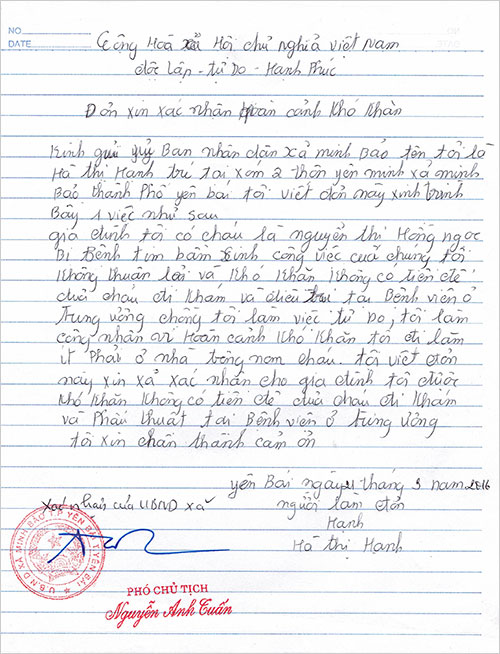 NO
DATE
Cộng Hoà xã Hội chủ nghĩa việt Nam
độc Lập - tự Do - Hạnh Phúc
Đơn xin xác nhận hoàn cảnh Khó Khăn
Kính gửi uỷ Ban nhân dân xã minh Bảo tên tôi là
Hà thị Hạnh trú tại xóm 2 thôn yên minh xã minh
Bảo thành Phố yên bái tôi viết đơn này xin trình
Bày 1 việc như sau
gia đình tôi có cháu là nguyễn thị Hồng ngọc
Bị Bệnh tim bẩm sinh công việc của chúng tôi
Không thuận lợi và Khó Khăn Không có tiền để
đưa cháu đi Khám và điều trị tại Bệnh viện ở
trung ương chồng tôi làm việc tự Do, tôi làm
công nhân vì Hoàn cảnh Khó Khăn tôi đi làm
ít Phải ở nhà trông nom cháu. tôi viết đơn
này xin xã xác nhận cho gia đình tôi được
Khó Khăn Không có tiền để đưa cháu đi Khám
và Phẫu thuật tại Bệnh viện ở trung ương
tôi xin chân thành cảm ơn
yên Bái ngày 21 tháng 3 năm 2016
Xác nhận của UBND xã
người làm đơn
Hạnh
Hà thị Hạnh
U.B.N.D XÃ MINH BẢO T.P YÊN BÁI T.YÊN BÁI
PHÓ CHỦ TỊCH
Nguyễn Anh Tuấn